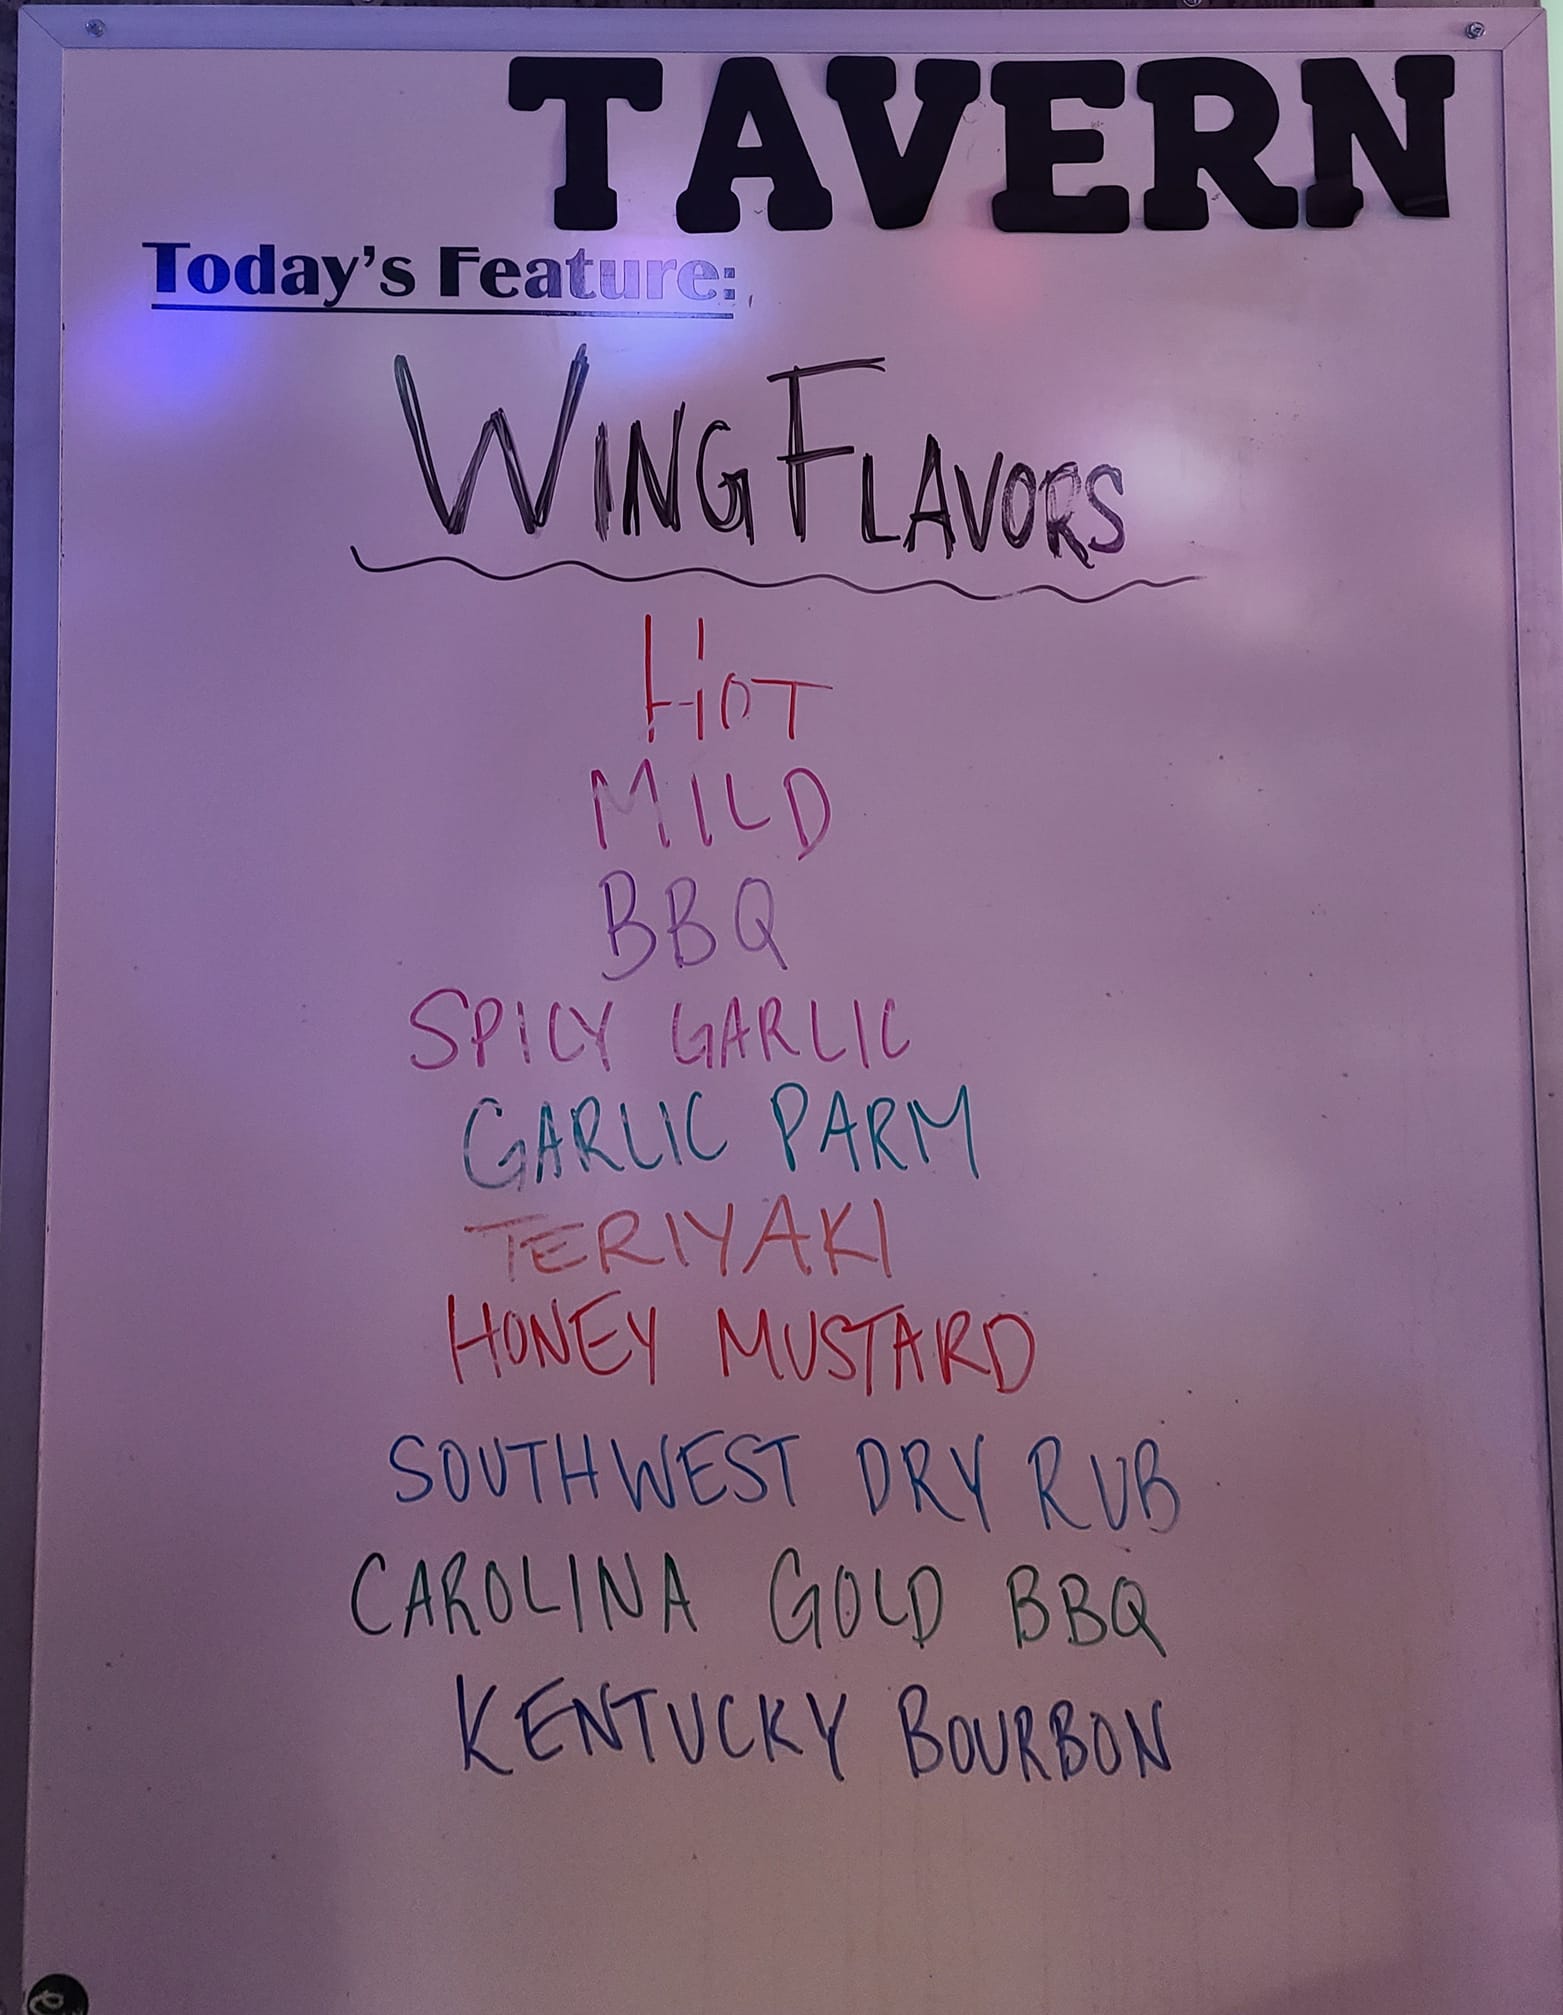 TAVERN
Today's Feature:
WING FLAVORS
HOT
MILD
BBQ
SPICY GARLIC
GARLIC PARM
TERIYAKI
HONEY MUSTARD
SOUTHWEST DRY RUB
CAROLINA GOLD BBQ
KENTUCKY BOURBON